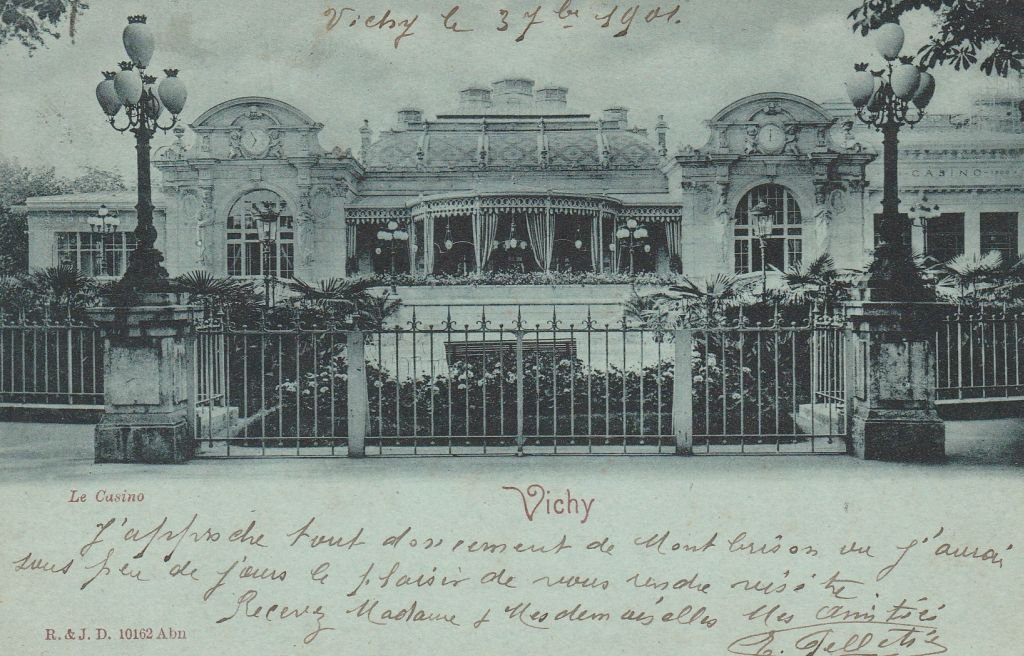 Vichy le 3 7bre 1901.
CASINO
Le Casino
Vichy
J'approche tout doucement de Montbrison ou j'aurai
sous peu de jours le plaisir de vous rendre visite
Recevez Madame & Mesdemoiselles Mes amitiés
R. & J. D. 10162 Abn
E. Pelletier